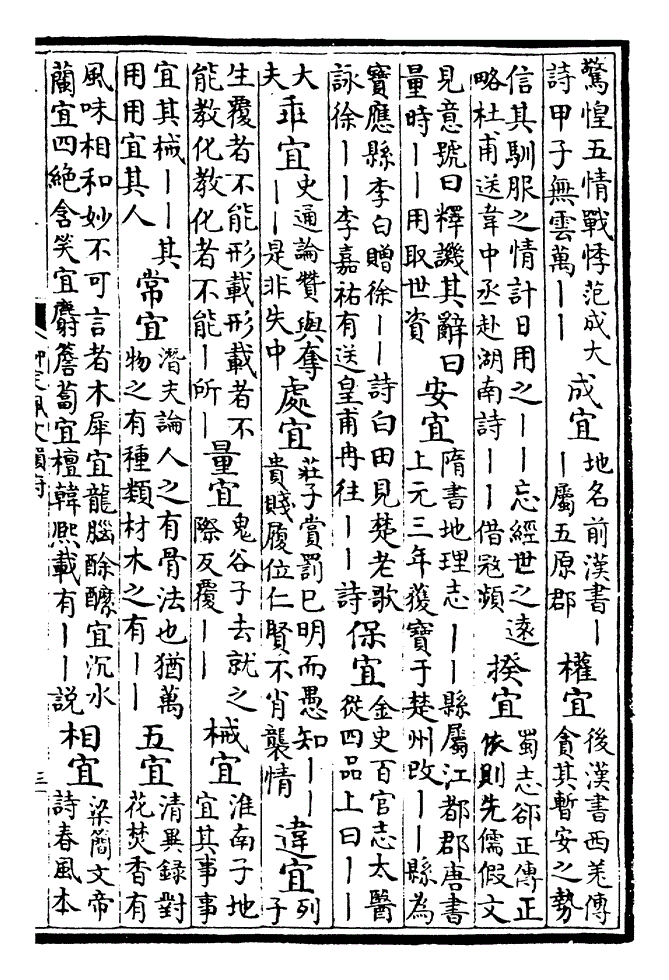 驚惶五情戰悸范成大
詩甲子無雲萬一一
成宜
地名前漢書一
一屬五原郡
權宜
後漢書西羌傳
貪其暫安之勢
信其馴服之情計日用之一一忘經世之遠
略杜甫送韋中丞赴湖南詩一一借寇頻
揆宜
蜀志郤正傳正
依則先儒假文
見意號曰釋譏其辭曰
量時一一用取世資
安宜
隋書地理志一一縣屬江都郡唐書
上元三年獲寶于楚州改一一縣為
寶應縣李白贈徐一一詩白田見楚老歌
詠徐一一李嘉祐有送皇甫冉往一一詩
保宜
金史百官志太醫
從四品上曰一一
大
夫
乖宜
史通論贊與奪
一一是非失中
處宜
莊子賞罰已明而愚知一一
貴賤履位仁賢不肖襲情
違宜
列
子
生覆者不能形載形載者不
能教化教化者不能一所一
量宜
鬼谷子去就之
際反覆一一
械宜
淮南子地
宜其事事
宜其械一一其
用用宜其人
常宜
潛夫論人之有骨法也猶萬
物之有種類材木之有一一
五宜
清異録對
花焚香有
風味相和妙不可言者木犀宜龍腦酴醾宜沉水
蘭宜四絶含笑宜麝薝蔔宜檀韓熙載有一一說
相宜
梁簡文帝
詩春風本